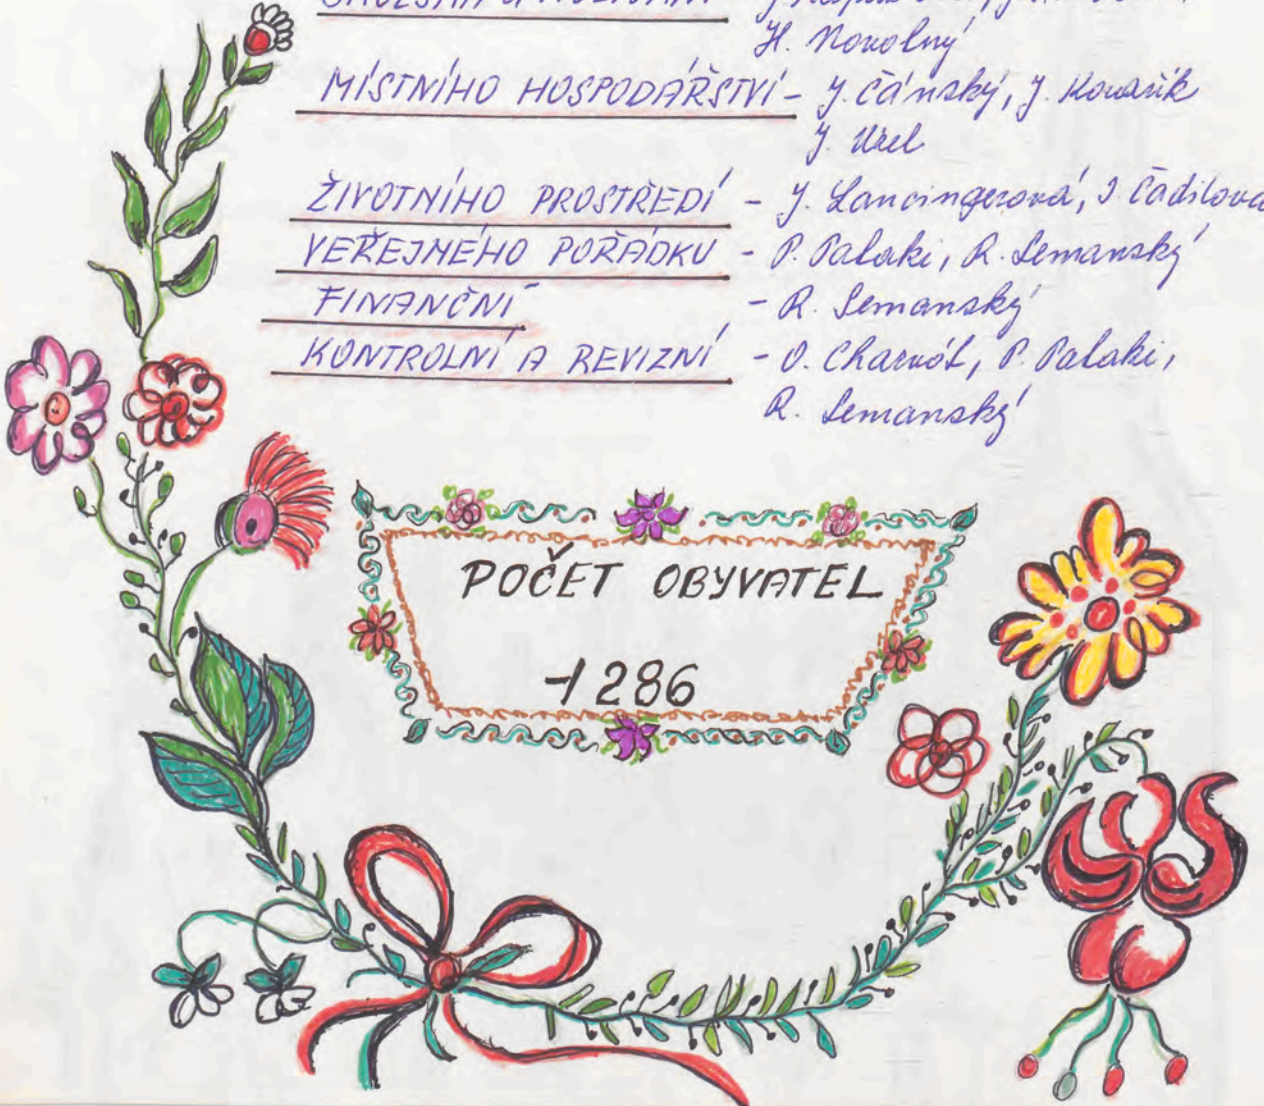 H. Novolný
MÍSTNÍHO HOSPODÁŘSTVÍ - J. Čánský, J. Kovařík
J. Uzel
ŽIVOTNÍHO PROSTŘEDÍ - J. Lancingerová, J. Čadilová
VEŘEJNÉHO POŘÁDKU - P. Palaki, R. Semanský
FINANČNÍ - R. Semanský
KONTROLNÍ A REVIZNÍ - O. Charvát, P. Palaki,
R. Semanský
POČET OBYVATEL
1286